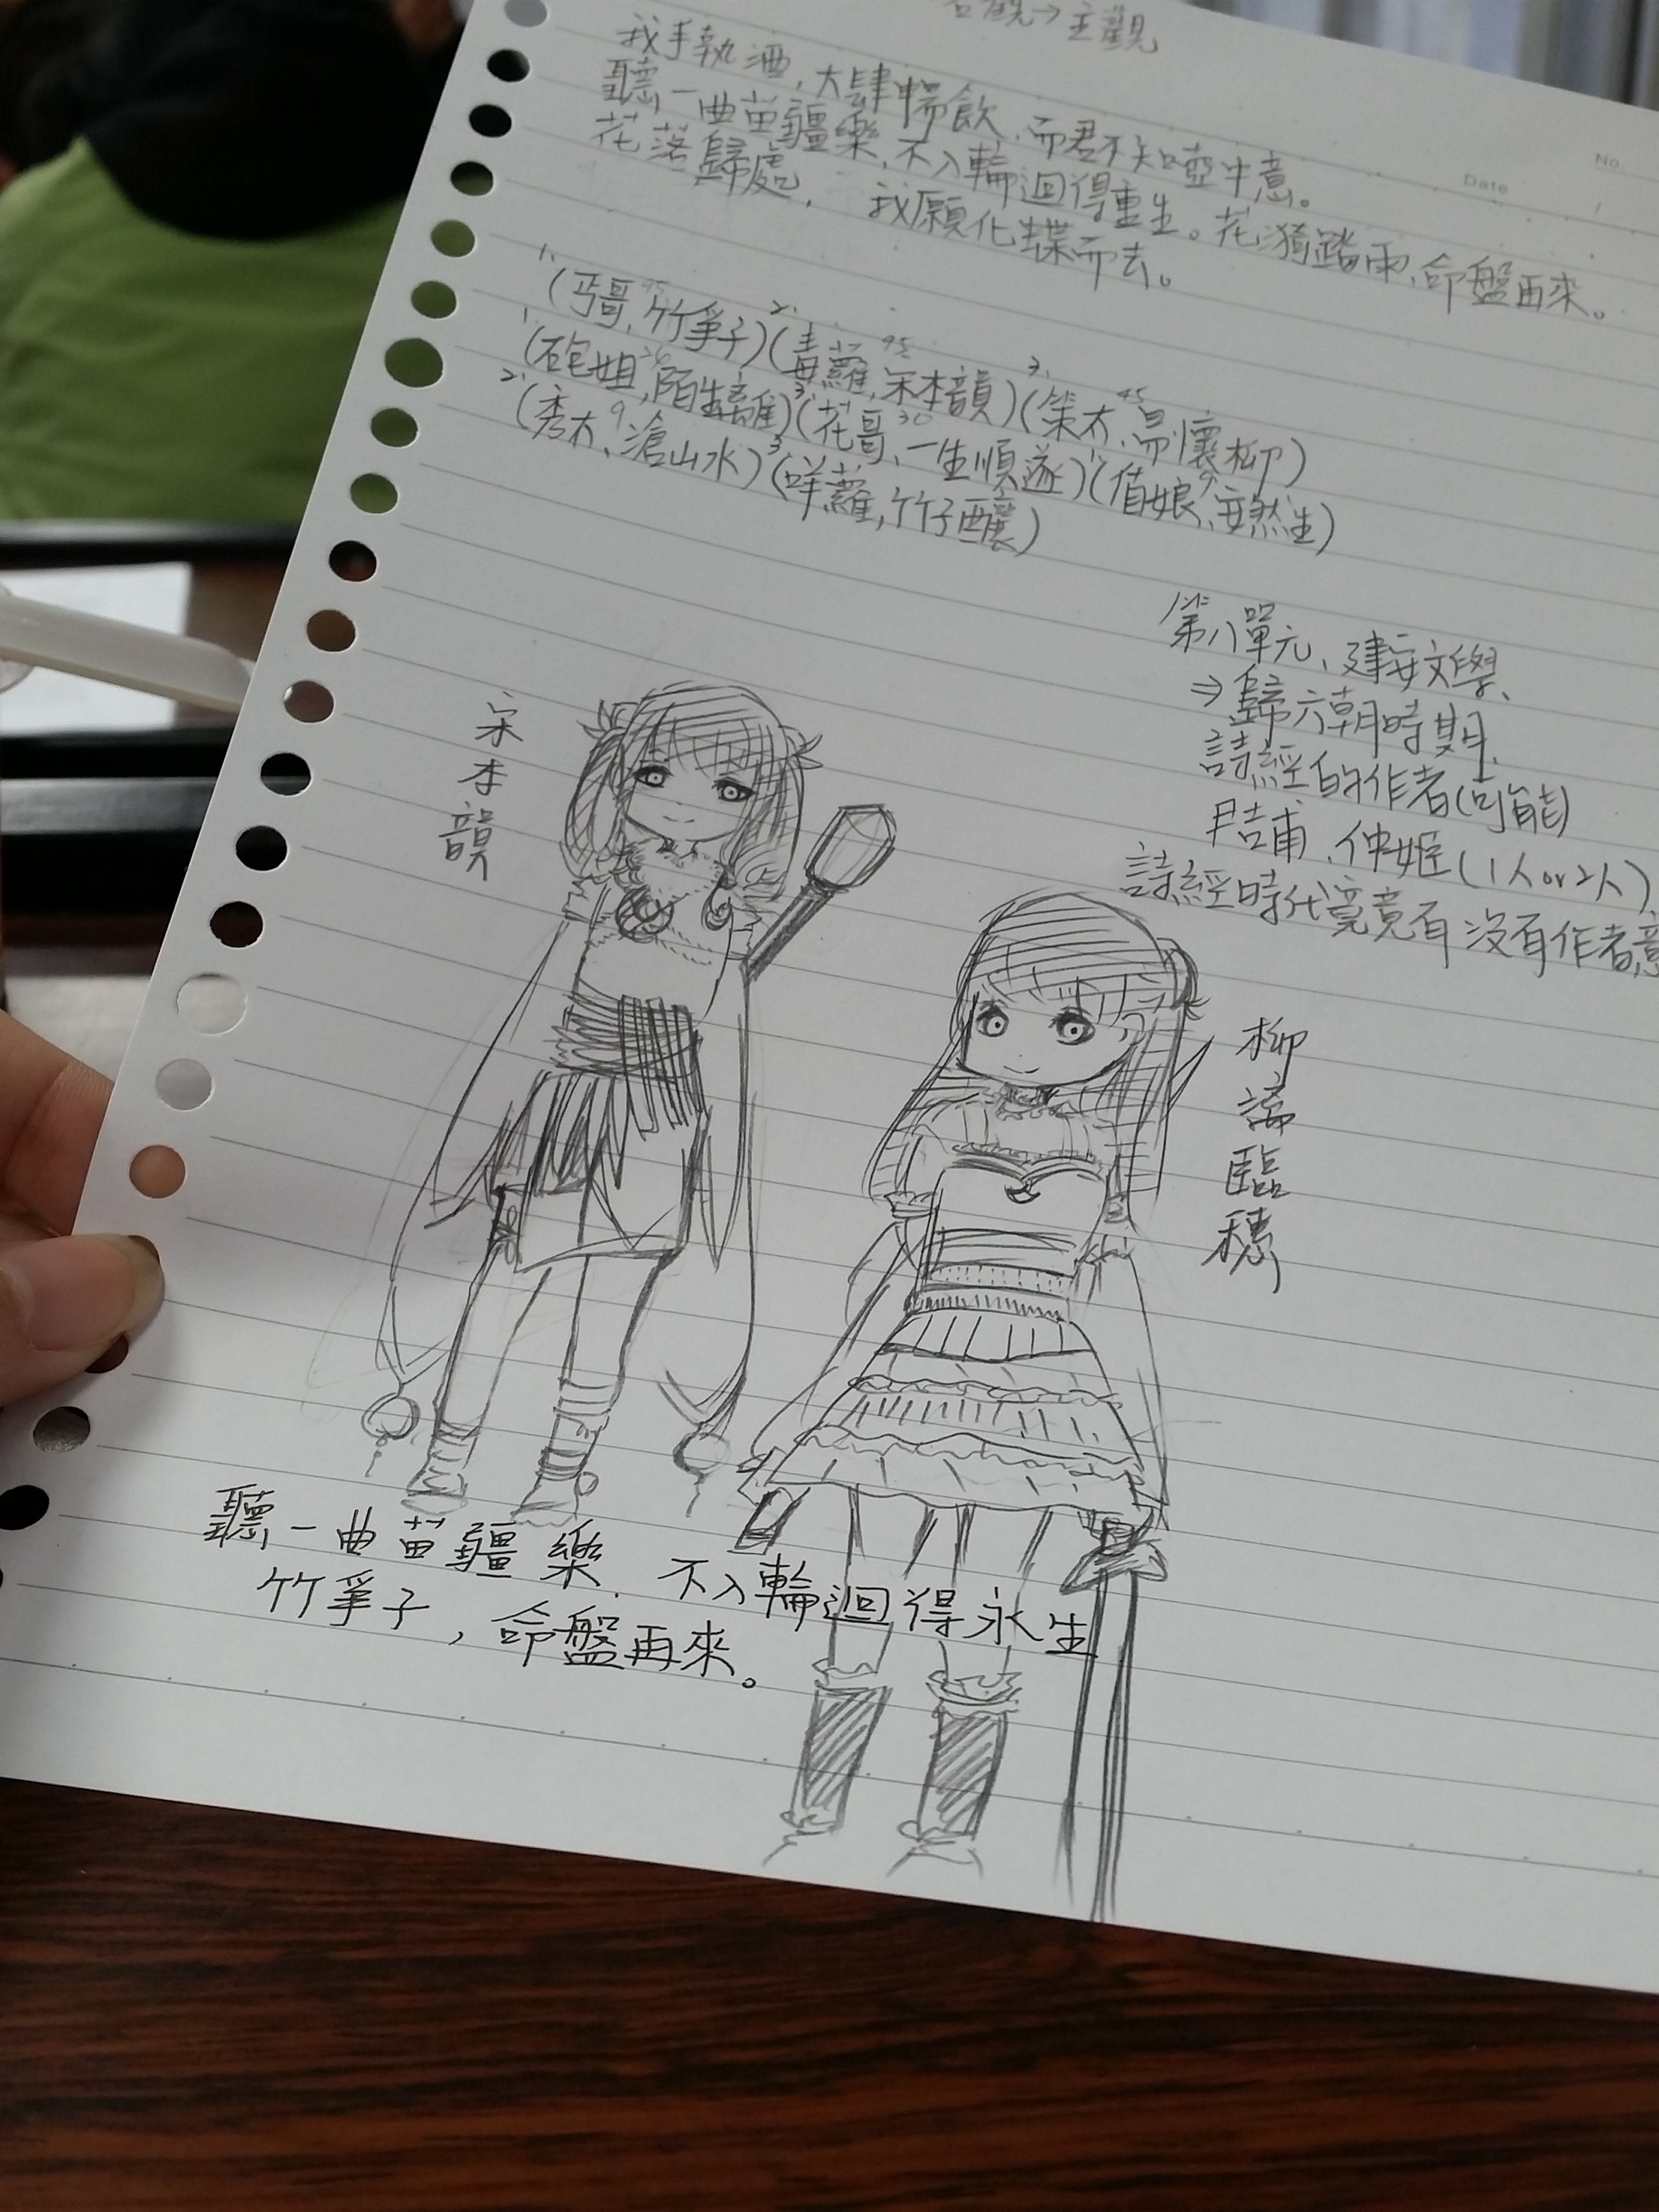 主觀
No.
Date
我手執酒，大肆暢飲，而君不知啞中意。
聽一曲苗疆樂，不入輪迴得重生。花漪踏雨，命盤再來。
花落歸處，我願化蝶而去。
1.(丐哥,竹爭子)2.(毒蘿,宋本韻)3.(策太,易懷柳)
1.(砲姐,陌生離)3.(花哥、一生順遂)
2.(秀太、滄山水)3.(咩蘿,竹子釀)
第八單元、建安文學、
⇒歸六朝時期、
詩經的作者(可能)
吉甫、仲姬(1人or2人)
詩經時代竟竟有沒有作者意
宋本韻
柳
臨
穗
聽一曲苗疆樂、不入輪迴得永生
竹爭子，命盤再來。